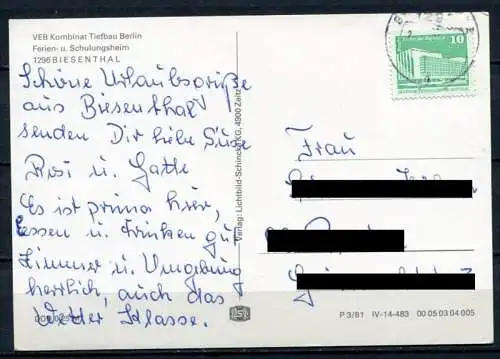 VEB Kombinat Tiefbau Berlin
Ferien- u. Schulungsheim
1296 BIESENTHAL
Schöne Urlaubsgrüße
aus Biesenthal
senden Dir liebe Suse
Rosi u. Gatte
Es ist prima hier,
Essen u. Trinken gut
Zimmer u. Umgebung
herrlich, auch das
Wetter Klasse.
Verlag: Lichtbild-Schincke KG, 4900 Zeitz
10
Frau
P 3/81 IV-14-483 00 05 03 04 005